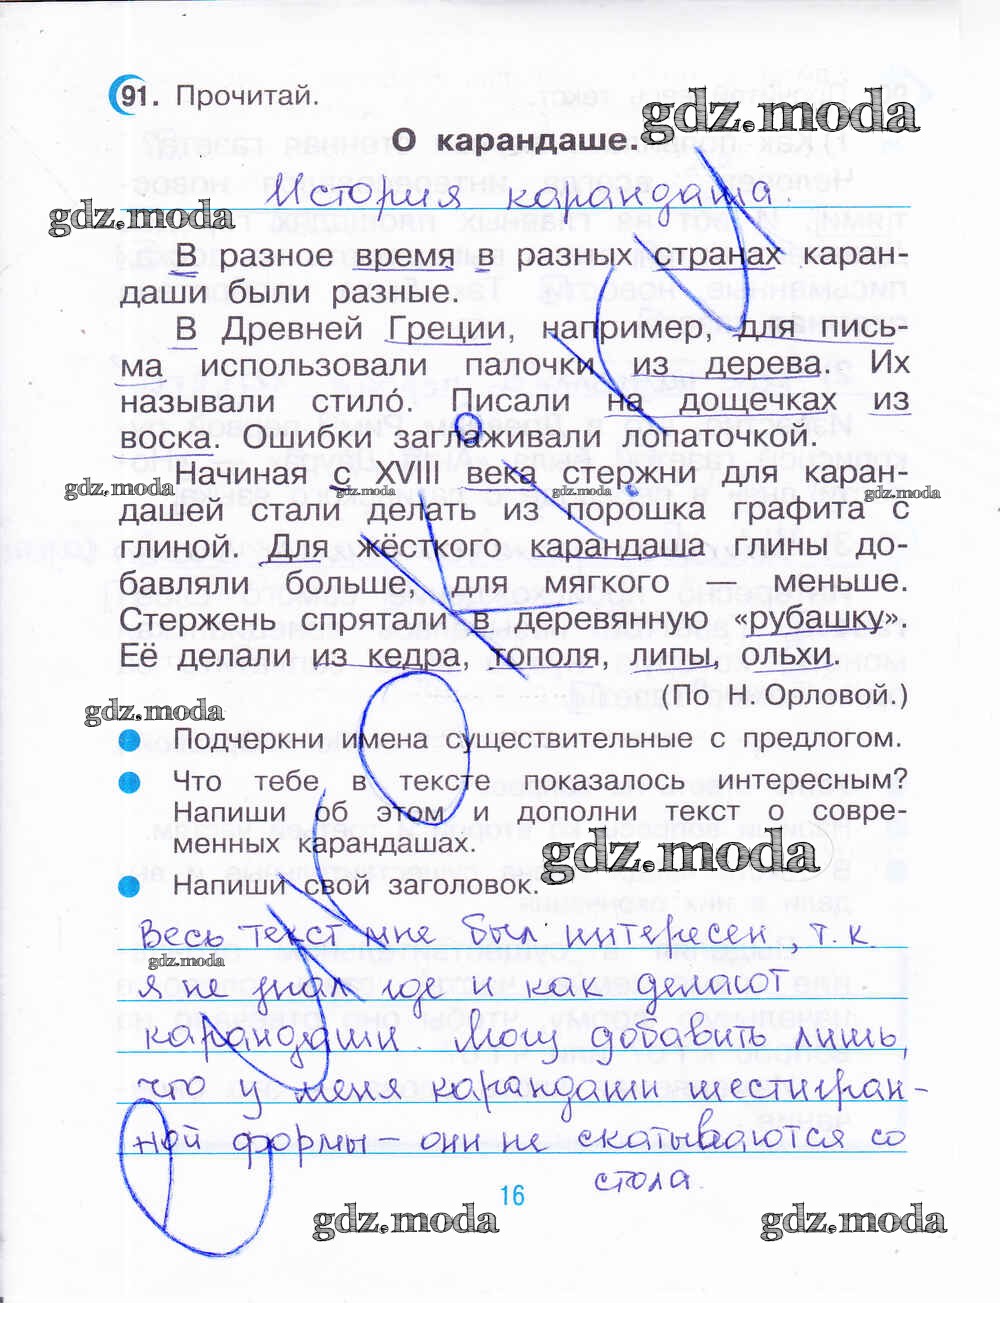 91. Прочитай.
gdz.moda
О карандаше.
История карандаша.
gdz.moda
В разное время в разных странах каран-
даши были разные.
В Древней Греции, например, для пись-
ма использовали палочки из дерева. Их
называли стило́. Писали на дощечках из
воска. Ошибки заглаживали лопаточкой.
Начиная с XVIII века стержни для каран-
gdz.moda gdz.moda gdz.moda gdz.moda
дашей стали делать из порошка графита с
глиной. Для жёсткого карандаша глины до-
бавляли больше, для мягкого — меньше.
Стержень спрятали в деревянную «рубашку».
Её делали из кедра, тополя, липы, ольхи.
(По Н. Орловой.)
gdz.moda
Подчеркни имена существительные с предлогом.
Что тебе в тексте показалось интересным?
Напиши об этом и дополни текст о совре-
менных карандашах.
gdz.moda
Напиши свой заголовок.
Весь текст мне был интересен, т.к.
gdz.moda
я не знал где и как делают
карандаши. Могу добавить лишь,
что у меня карандаши шестигран-
ной формы – они не скатываются со
стола.
16
gdz.moda gdz.moda